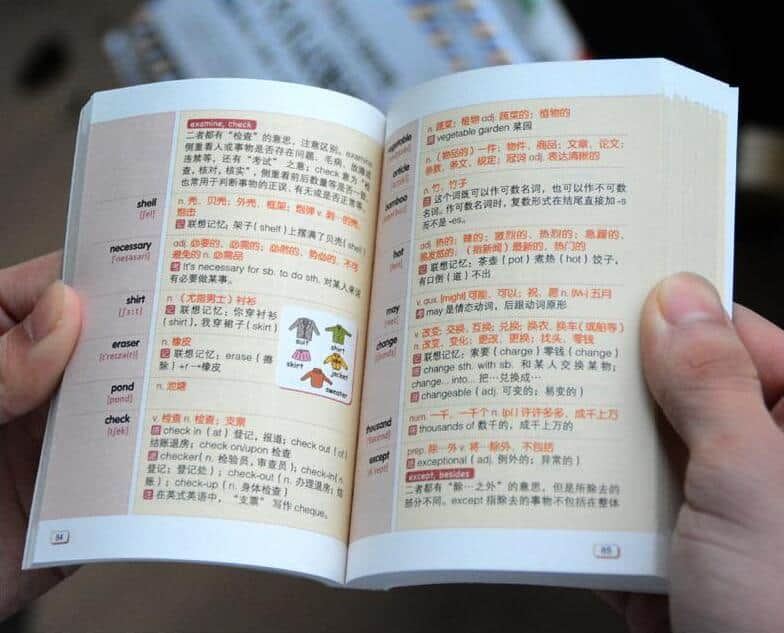 examine, check
二者都有“检查”的意思，注意区别。examine
侧重看人或事物是否存在问题、毛病、故障或
违禁等，还有“考试”之意；check 意为“检
查，核对，核实”，侧重看前后数量等是否一致，
也常用于判断事物的正误、有无或是否正常等。
shell
[ʃel]
n. 壳、贝壳；外壳、框架；炮弹 v. 剥…的壳、
炮击
记 联想记忆：架子(shelf)上摆满了贝壳(shell)
necessary
['nesəsəri]
adj. 必要的、必需的；必然的、势必的、不可
避免的 n. 必需品
考 It's necessary for sb. to do sth. 对某人来说
有必要做某事。
shirt
[ʃɜːt]
n. （尤指男士）衬衫
记 联想记忆：你穿衬衫
(shirt)，我穿裙子(skirt)
suit
shirt
skirt
jacket
sweater
eraser
n. 橡皮
记 联想记忆：erase（擦
除）+r→橡皮
pond
[pɒnd]
n. 池塘
check
[tʃek]
v. 检查 n. 检查；支票
check in（at）登记，报道；check out（of）
结账退房；check on/upon 检查
checker(n. 检验员，审查员)；check-in(n.
登记；登记处)；check-out（n. 办理退房；结
账）；check-up（n. 身体检查）
注 在英式英语中，“支票”写作 cheque。
84
vegetable
n. 蔬菜；植物 adj. 蔬菜的；植物的
vegetable garden 菜园
article
n. （物品的）一件；物件、商品；文章、论文；
条款、条文、规定；冠词 adj. 表达清晰的
bamboo
n. 竹，竹子
这个词既可以作可数名词，也可以作不可数
名词。作可数名词时，复数形式在结尾直接加 -s
而不是 -es。
hot
adj. 热的；辣的；激烈的、热烈的；急躁的、
易发怒的；（指新闻）最新的、热门的
记 联想记忆：茶壶（pot）煮热（hot）饺子，
有口倒（道）不出
may
v. aux. [might] 可能、可以；祝、愿 n. (M-) 五月
考 may 是情态动词，后跟动词原形
change
v. 改变；交换、互换；兑换；换衣、换车（或船等）
n. 改变、变化；更改、更换；找头、零钱
记 联想记忆：索要（charge）零钱（change）
change sth. with sb. 和某人交换某物；
change... into... 把…兑换成…
changeable（adj. 可变的；易变的）
thousand
num. 一千，一千个 n. [pl.] 许许多多、成千上万
thousands of 数千的，成千上万的
except
prep. 除…外 v. 将…除外、不包括
exceptional（adj. 例外的；异常的）
except, besides
二者都有“除…之外”的意思，但是所除去的
部分不同。except 指除去的事物不包括在整体
85